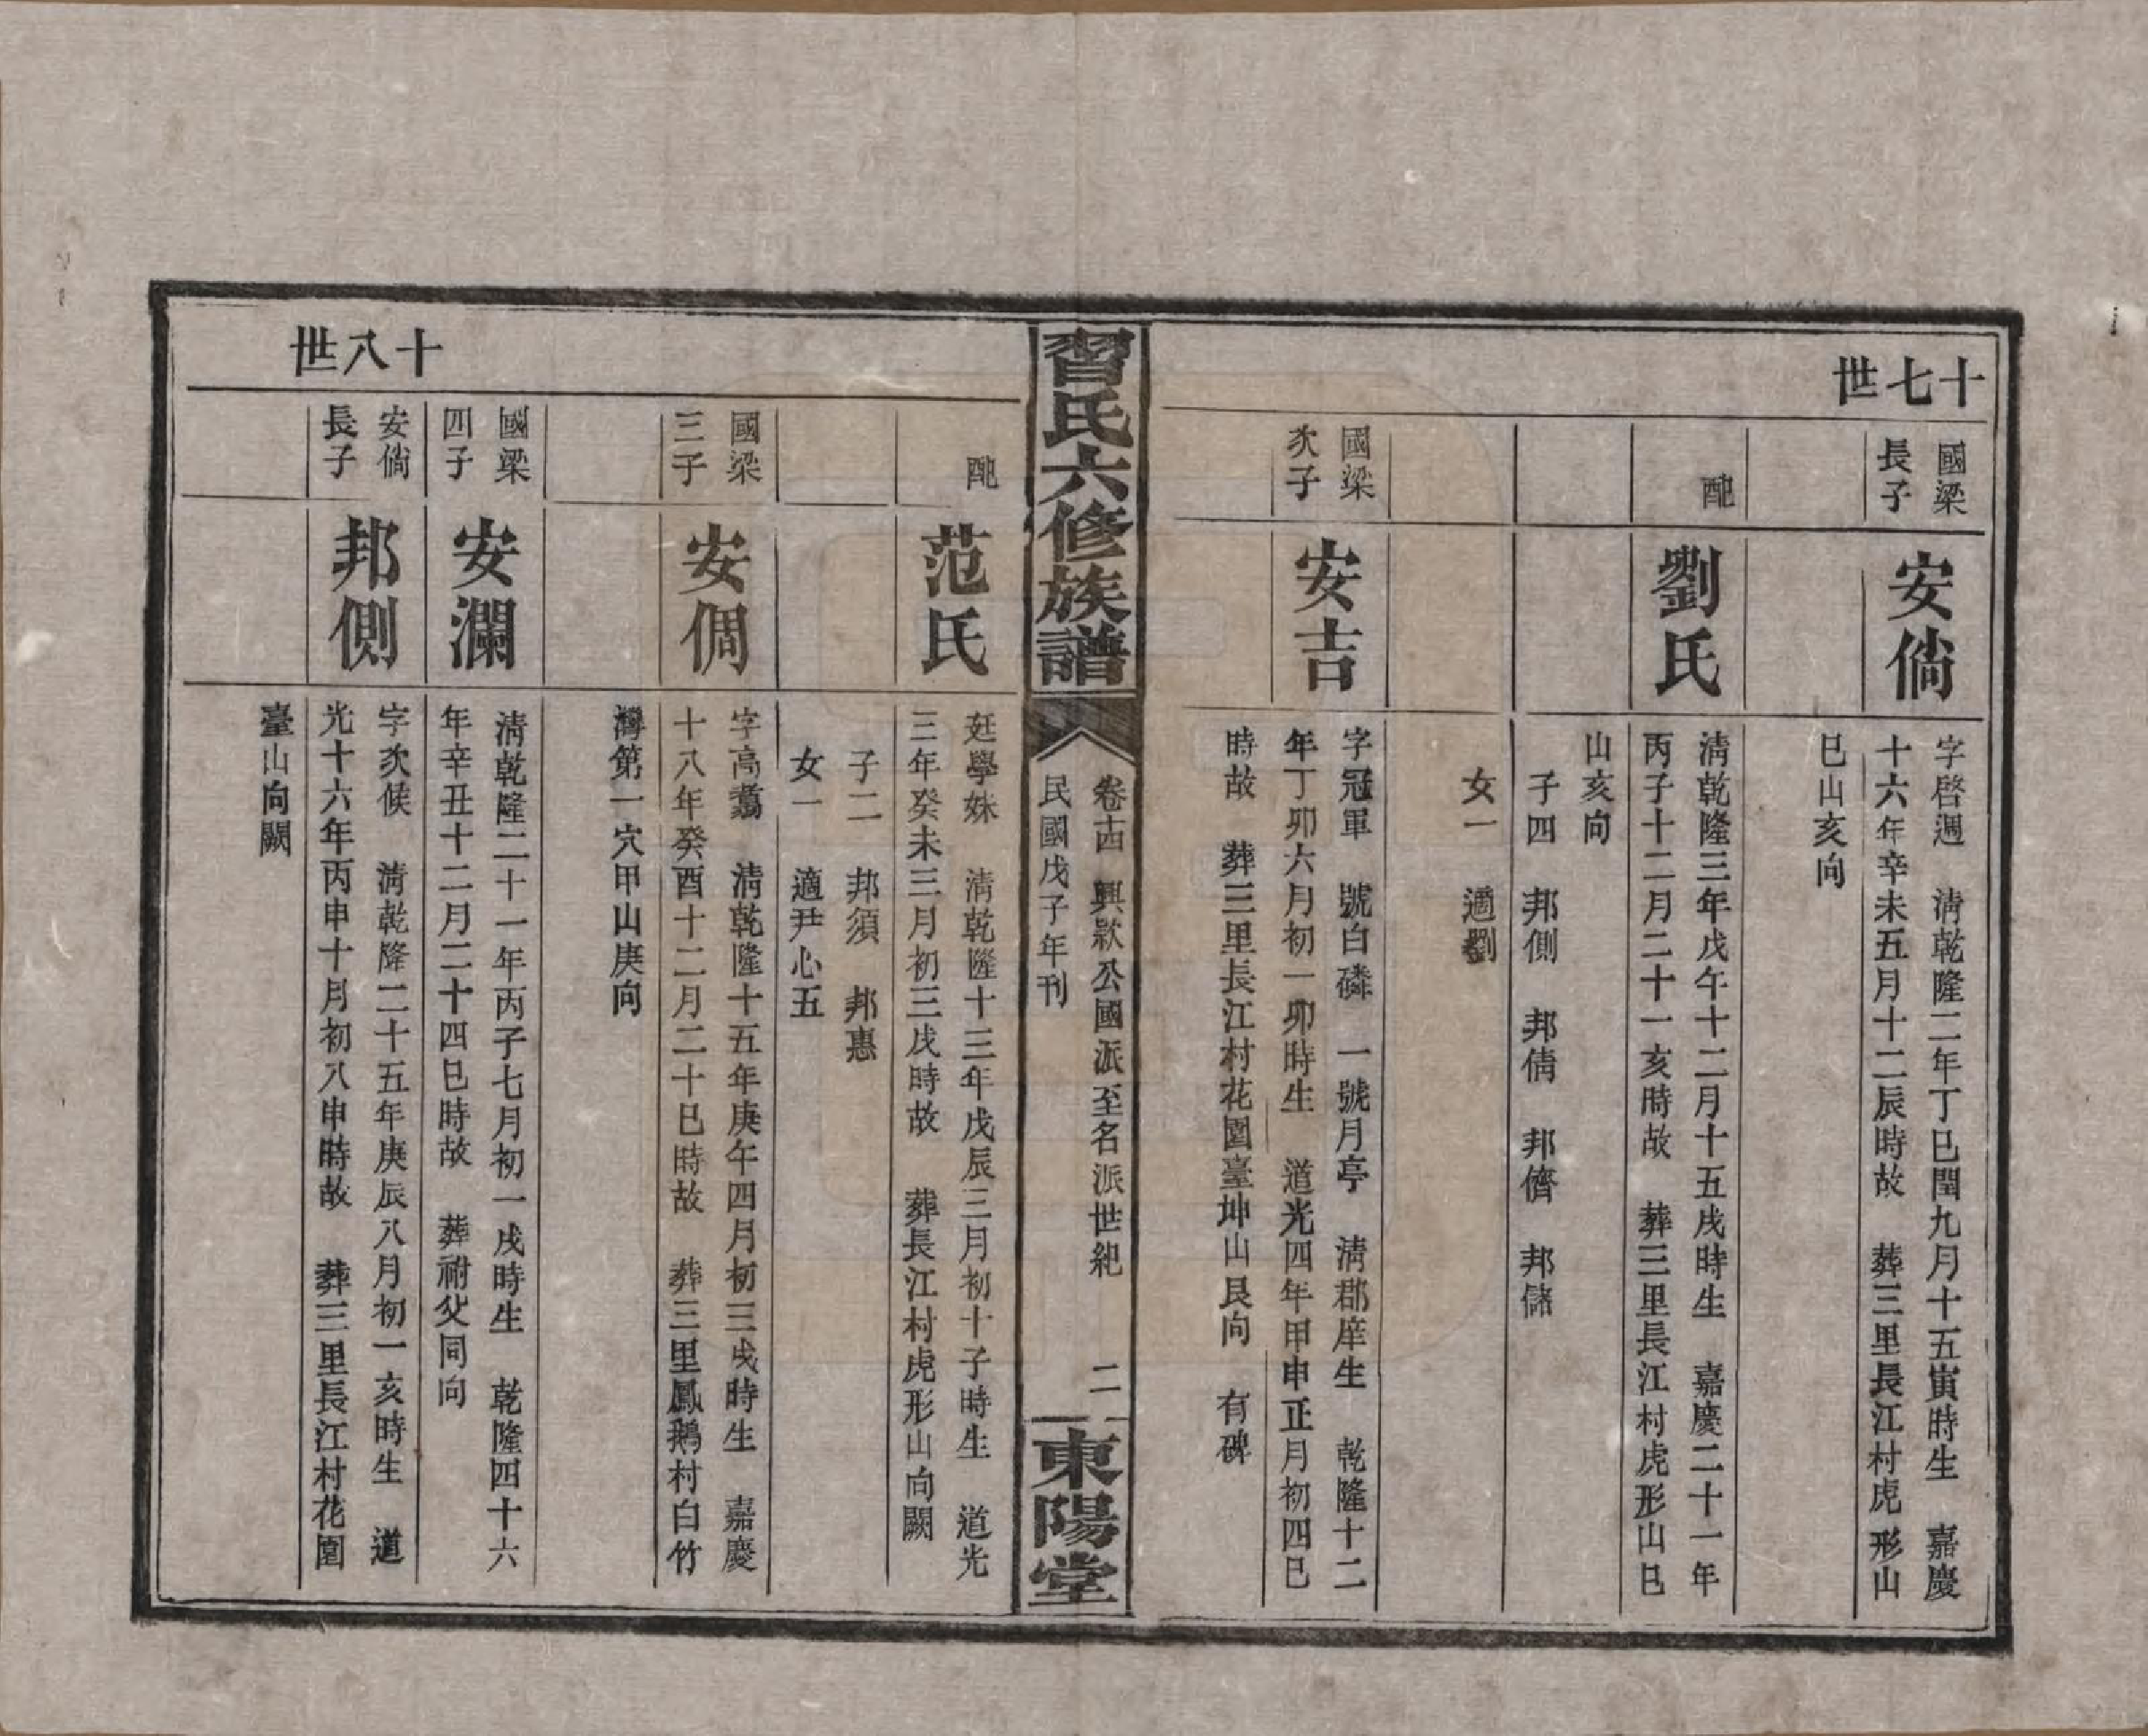 十七世
國梁
長子
安倘
字啓週 清乾隆二年丁巳閏九月十五寅時生 嘉慶
十六年辛未五月十二辰時故 葬三里長江村虎形山
巳山亥向
配
劉氏
清乾隆三年戊午十二月十五戌時生 嘉慶二十一年
丙子十二月二十一亥時故 葬三里長江村虎形山巳
山亥向
子四 邦側 邦倩 邦儕 邦儲
女一 適劉
國梁
次子
安吉
字冠軍 號白磷 一號月亭 清郡庠生 乾隆十二
年丁卯六月初一卯時生 道光四年甲申正月初四巳
時故 葬三里長江村花園臺坤山艮向 有碑
習氏六修族譜
卷十四 興欵公國派至名派世紀 二
民國戊子年刊
東陽堂
配
范氏
廷學妹 清乾隆十三年戊辰三月初十子時生 道光
三年癸未三月初三戌時故 葬長江村虎形山向闕
子二 邦須 邦惠
女一 適尹心五
國梁
三子
安倜
字高翥 清乾隆十五年庚午四月初三戌時生 嘉慶
十八年癸酉十二月二十巳時故 葬三里鳳鵝村白竹
灣第一穴甲山庚向
國梁
四子
安瀾
清乾隆二十一年丙子七月初一戌時生 乾隆四十六
年辛丑十二月二十四巳時故 葬祔父同向
十八世
安倘
長子
邦側
字次候 清乾隆二十五年庚辰八月初一亥時生 道
光十六年丙申十月初八申時故 葬三里長江村花園
臺山向闕